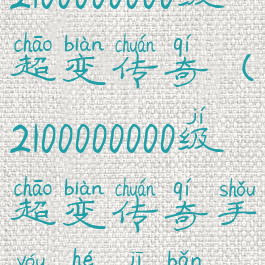 2100000000级
chāo biàn chuán qí
超变传奇（
jí
2100000000级
chāo biàn chuán qí shǒu
超变传奇手
yóu hé jī bǎn